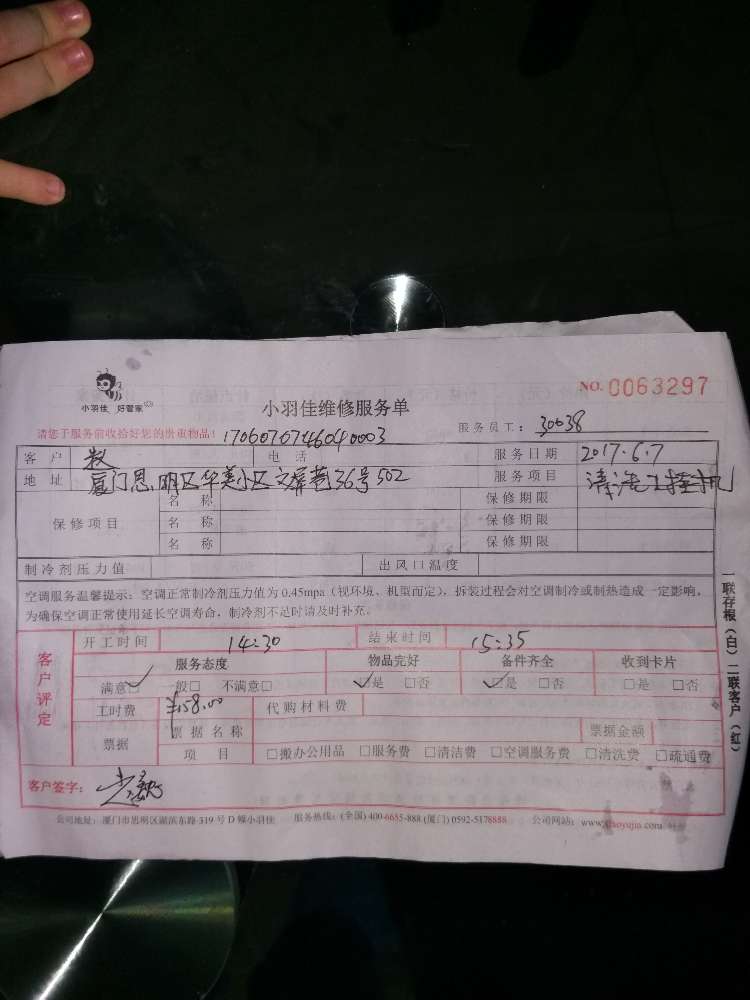 小羽佳 好管家
小羽佳维修服务单
NO. 0063297
请您于服务前收拾好您的贵重物品!
17060707460400003
服务员工: 30038
客户 电话 服务日期 2017.6.7
地址 厦门思明区华美小区文屏巷36号502 服务项目 清洗1挂机
保修项目 名称 保修期限
名称 保修期限
名称 保修期限
制冷剂压力值 出风口温度
空调服务温馨提示:空调正常制冷剂压力值为0.45mpa(视环境、机型而定),拆装过程会对空调制冷或制热造成一定影响,
为确保空调正常使用延长空调寿命,制冷剂不足时请及时补充。
客户评定
开工时间 14:30 结束时间 15:35
服务态度 物品完好 备件齐全 收到卡片
满意☑ 一般□ 不满意□ ☑是 □否 ☑是 □否 □是 □否
工时费 ¥158.00 代购材料费
票据 票据名称 票据金额
项目 □搬办公用品 □服务费 □清洁费 □空调服务费 □清洗费 □疏通费
客户签字:
公司地址:厦门市思明区湖滨东路319号D幢小羽佳 服务热线:(全国)400-6655-888 (厦门)0592-5178888 公司网站:www.xiaoyujia.com
一联存根(白)二联客户(红)